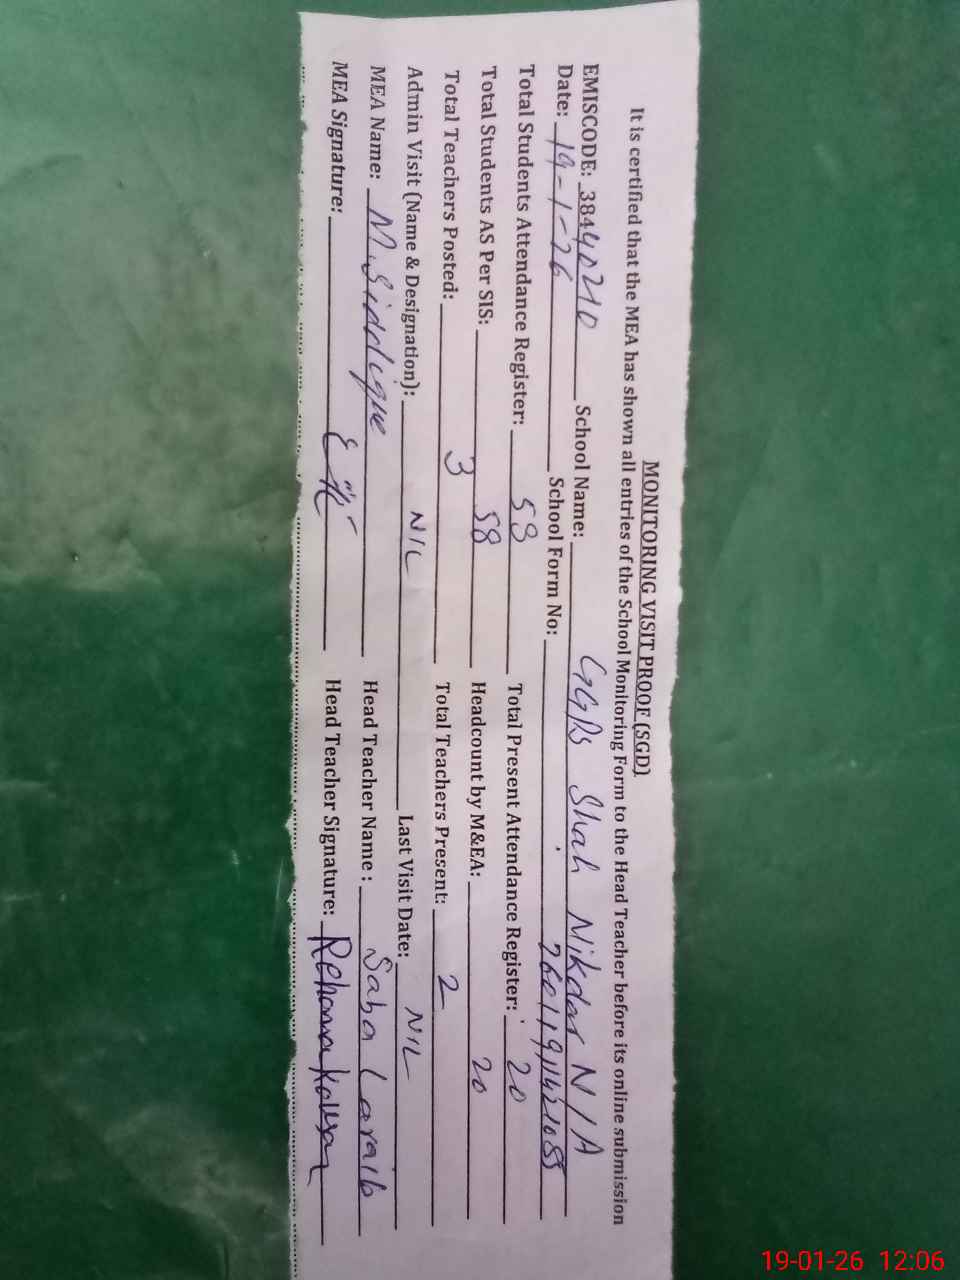 MONITORING VISIT PROOF (SGD)
It is certified that the MEA has shown all entries of the School Monitoring Form to the Head Teacher before its online submission
EMISCODE: 38440210 School Name: GGPS Shah Nikdar N/A
Date: 19-1-26 School Form No:
Total Students Attendance Register: 58 Total Present Attendance Register: 20
Total Students AS Per SIS: 58 Headcount by M&EA: 20
Total Teachers Posted: 3 Total Teachers Present: 2
Admin Visit (Name & Designation): NIL Last Visit Date: NIL
MEA Name: M. Siddique Head Teacher Name : Saba Laraib
MEA Signature: Head Teacher Signature: Rehana Kousar
19-01-26 12:06